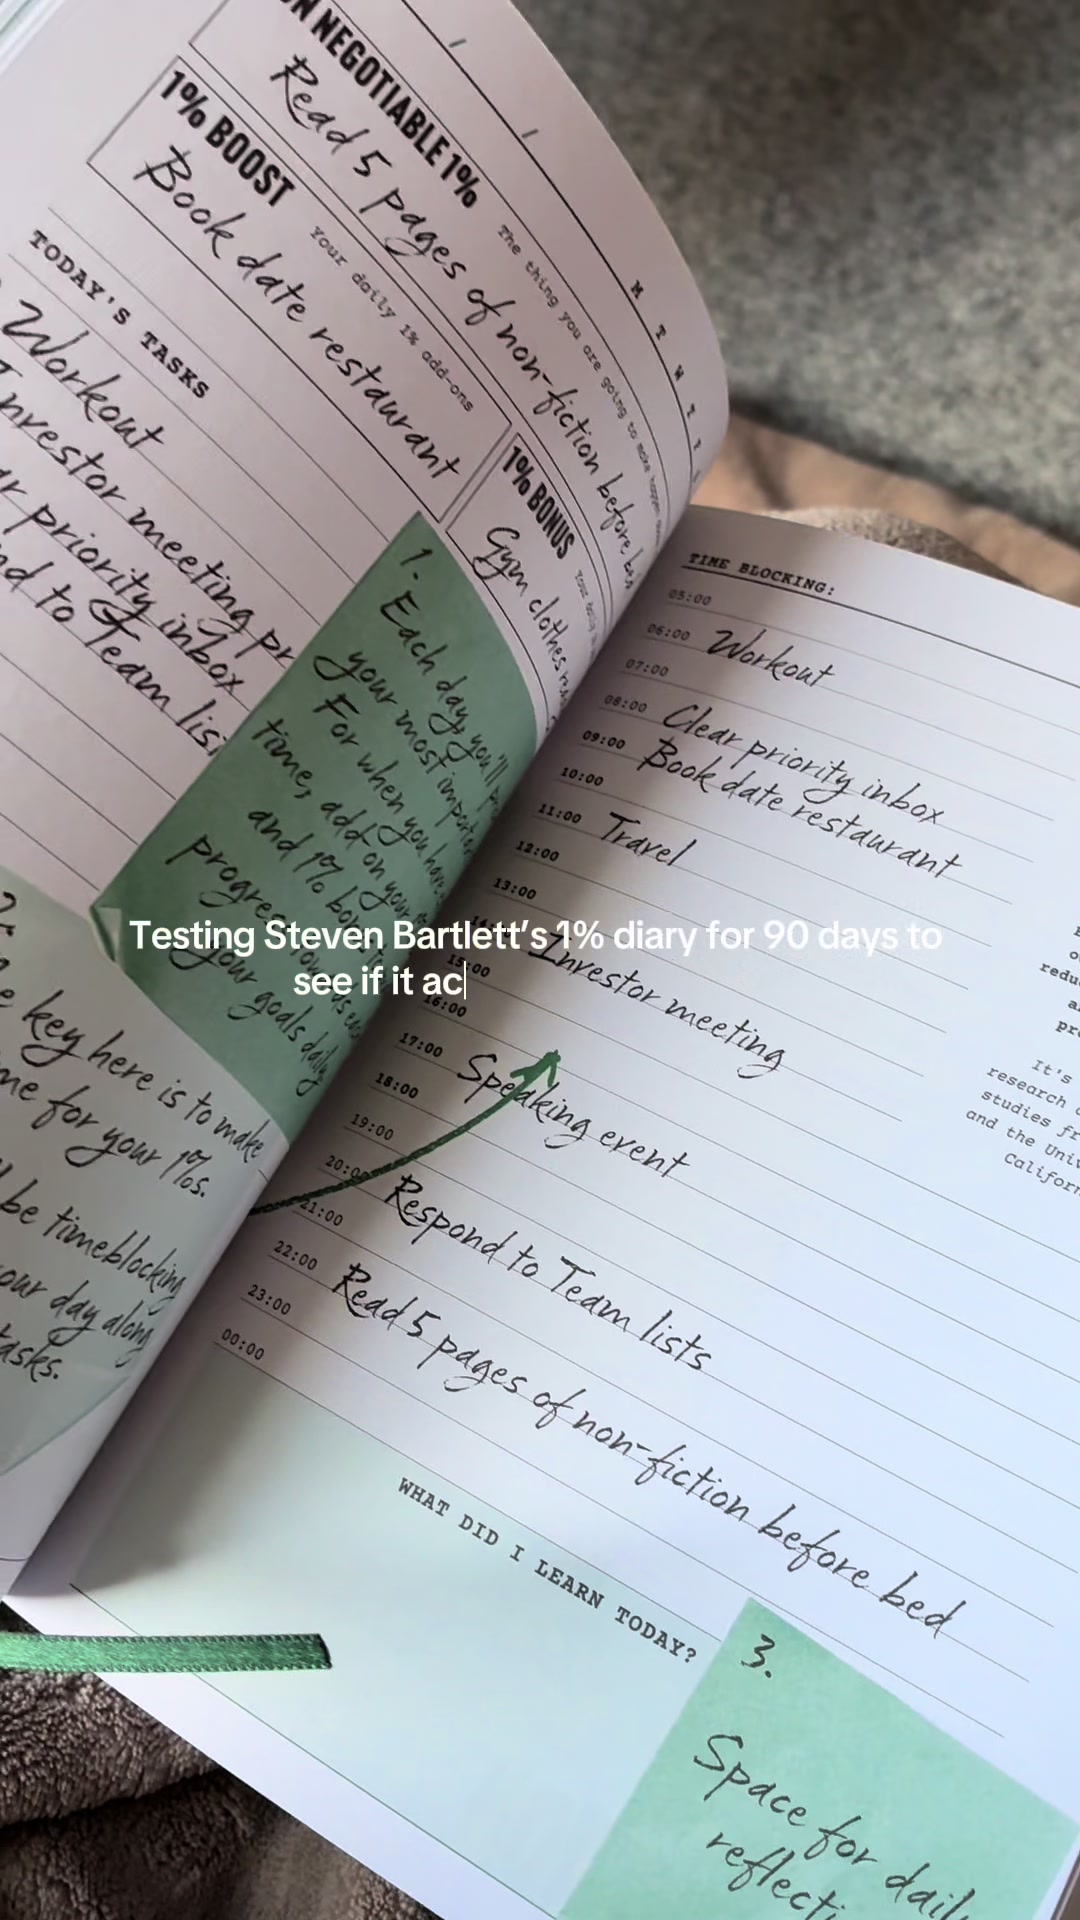 NON NEGOTIABLE 1%
The thing you are going to make happen
Read 5 pages of non-fiction before bed
1% BOOST
Your daily 1% add-ons
Book date restaurant
1% BONUS
Gym clothes
M T W T F
TODAY'S TASKS
Workout
Investor meeting
priority inbox
to Team list
1.
Each day, you'll
your most important
For when you have
time, add on your
and 1% bonus
progress towards
your goals daily
key here is to make
for your 1%s.
be timeblocking
your day along
tasks.
TIME BLOCKING:
05:00
06:00 Workout
07:00
08:00 Clear priority inbox
09:00 Book date restaurant
10:00
11:00 Travel
12:00
13:00
Investor meeting
15:00
16:00
17:00 Speaking event
18:00
19:00
20:00 Respond to Team lists
21:00
22:00 Read 5 pages of non-fiction before bed
23:00
00:00
It's
research
studies
and the
WHAT DID I LEARN TODAY?
3.
Space for daily
Testing Steven Bartlett's 1% diary for 90 days to
see if it ac